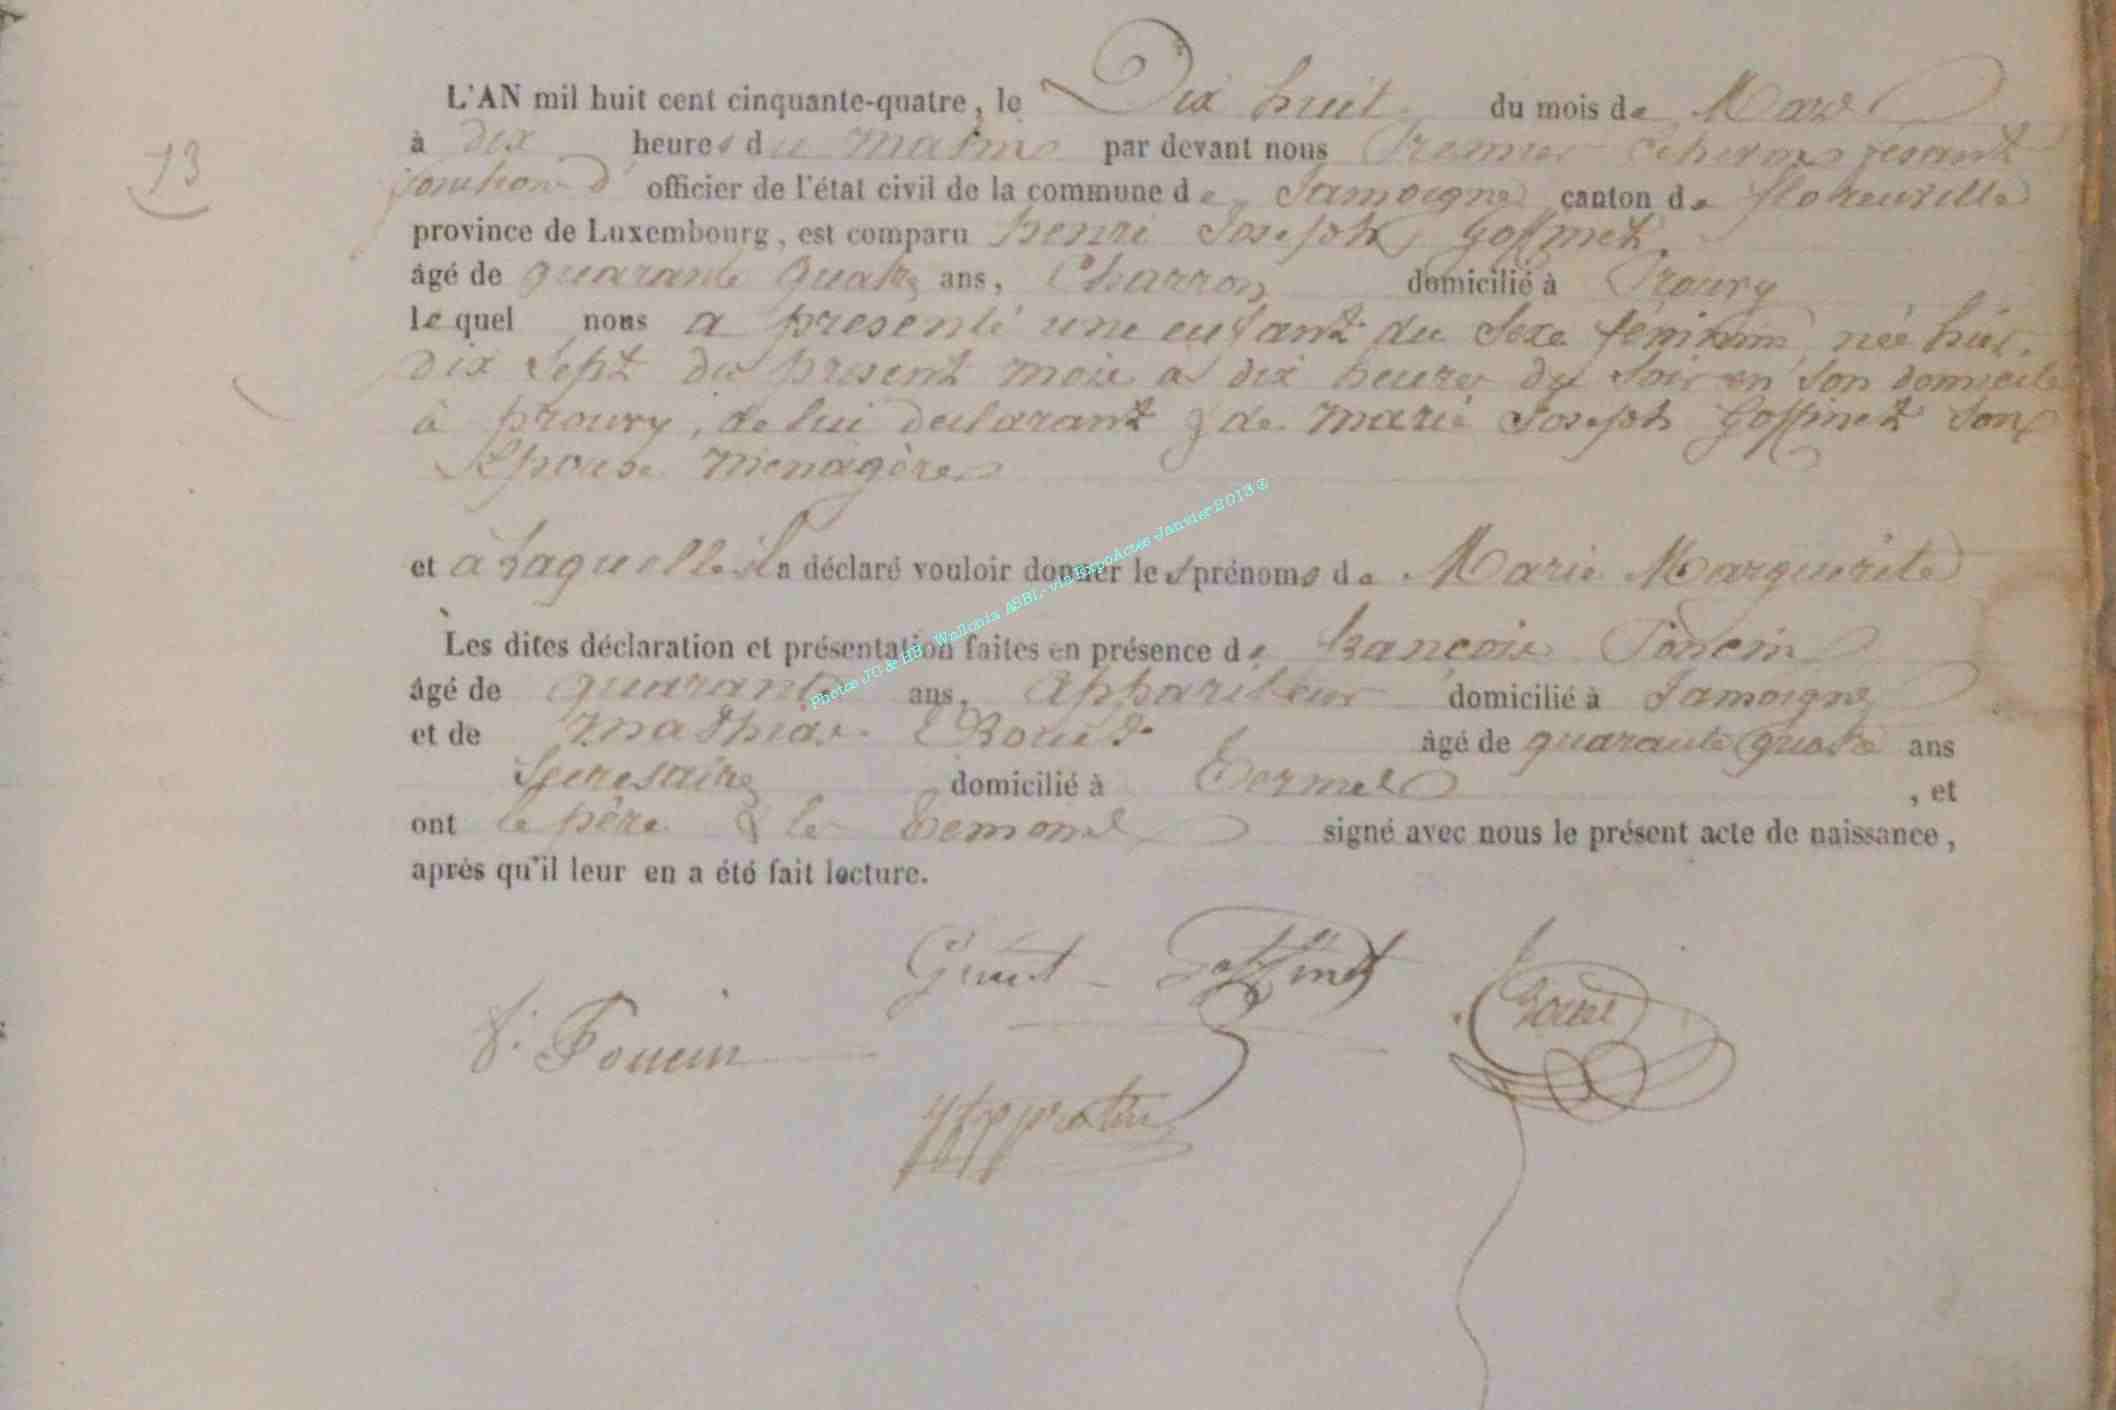 L'AN mil huit cent cinquante-quatre, le Dix huit du mois de Mars
13
à dix heures du matin par devant nous Premier Echevin fesant
fonction d' officier de l'état civil de la commune de Jamoigne canton de florenville
province de Luxembourg, est comparu henri Joseph Goffinet
âgé de quarante quatre ans, Charron domicilié à Prouvy
lequel nous a presenté une enfant du Sexe féminin, née hier
dix sept du present mois à dix heures du soir en son domicile
à prouvy, de lui declarant & de marie Joseph Goffinet son
Epouse menagère
et à Laquelle il a déclaré vouloir donner les prénoms de Marie Marguerite
Les dites déclaration et présentation faites en présence de francois
âgé de quarante ans, Appariteur domicilié à Jamoigne
et de mathias âgé de quarante quatre ans
Secretaire domicilié à Termes, et
ont le père & les temoins signé avec nous le présent acte de naissance,
après qu'il leur en a été fait lecture.
Goffinet
f.
Photos JC & HB - Wallonia ASBL - via ExpoActes Janvier 2013 ®